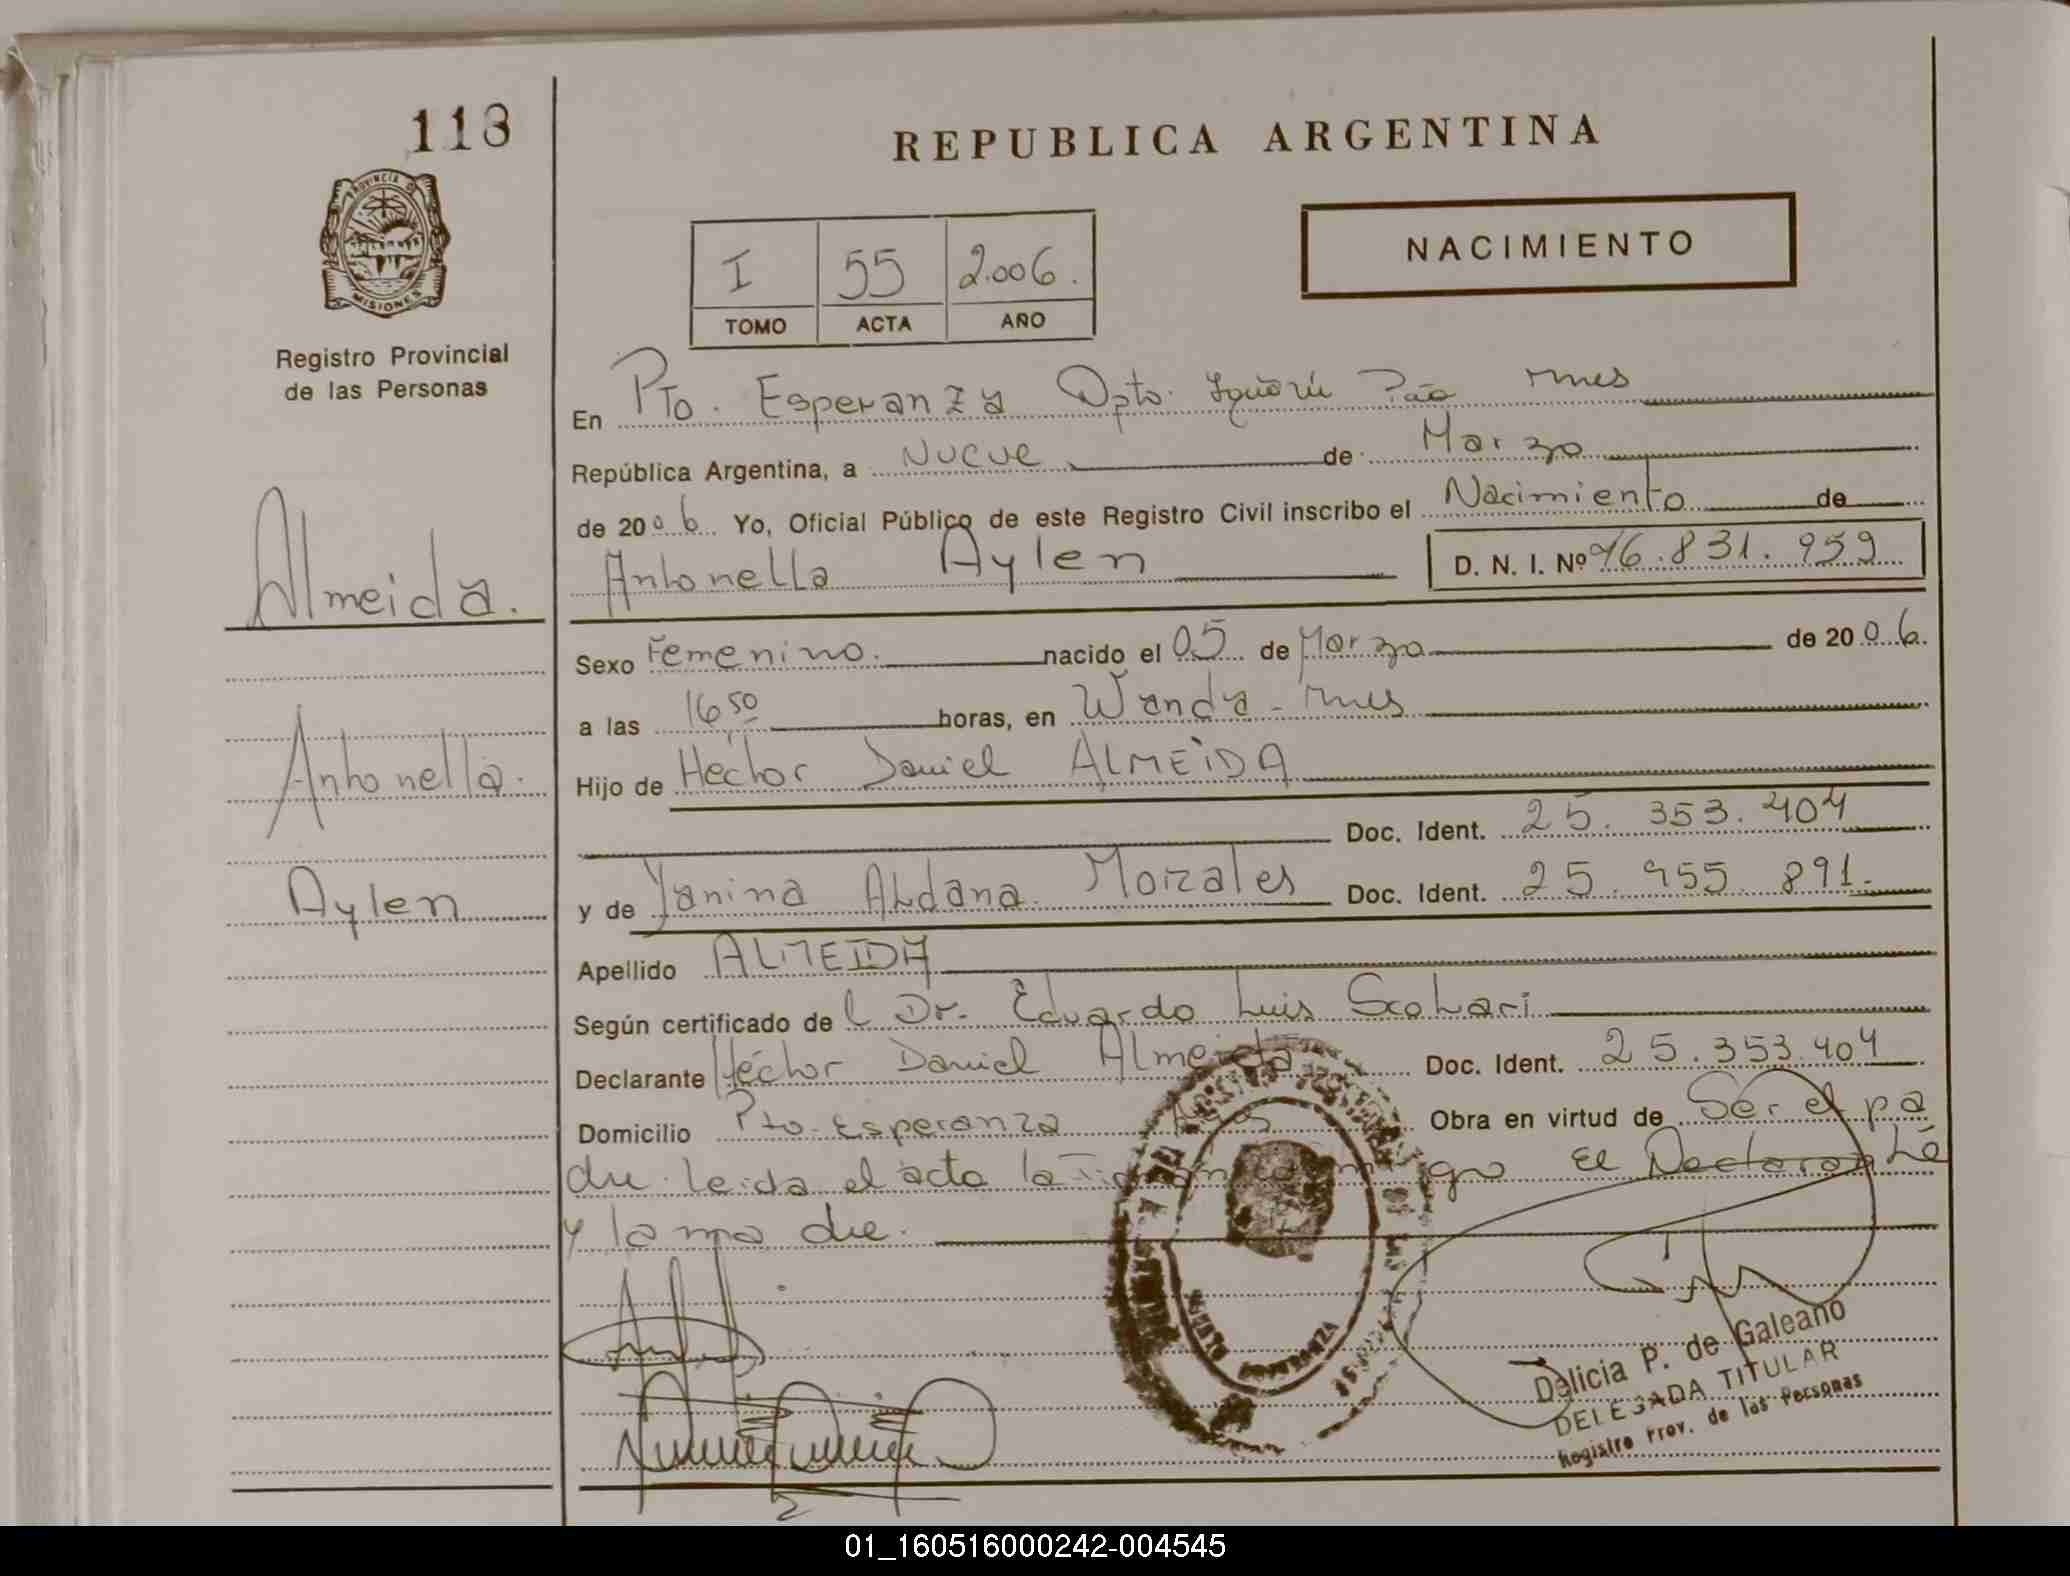 118
REPUBLICA ARGENTINA
PROVINCIA DE
MISIONES
Registro Provincial
de las Personas
I 55 2.006.
TOMO ACTA AÑO
NACIMIENTO
En Pto. Esperanza Dpto. Iguazú mnes
República Argentina, a Nueve de Marzo
de 2006 Yo, Oficial Público de este Registro Civil inscribo el Nacimiento de
Antonella Aylen D. N. I. Nº 46.831.959
Almeida.
Antonella.
Aylen
Sexo Femenino. nacido el 05 de Marzo de 2006.
a las 16 50 horas, en Wanda - mnes
Hijo de Héctor Daniel ALMEiDA
Doc. Ident. 25.353.404
y de Yanina Aldana Morales Doc. Ident. 25.455.891.
Apellido ALMEIDA
Según certificado del Dr. Eduardo Luis Scolari
Declarante Héctor Daniel Almeida Doc. Ident. 25.353.404
Domicilio Pto. Esperanza Obra en virtud de Ser el pa
dre. Leida el acta la El Declarante
y la madre.
Delicia P. de Galeano
DELEGADA TITULAR
Registro Prov. de las Personas
01_160516000242-004545